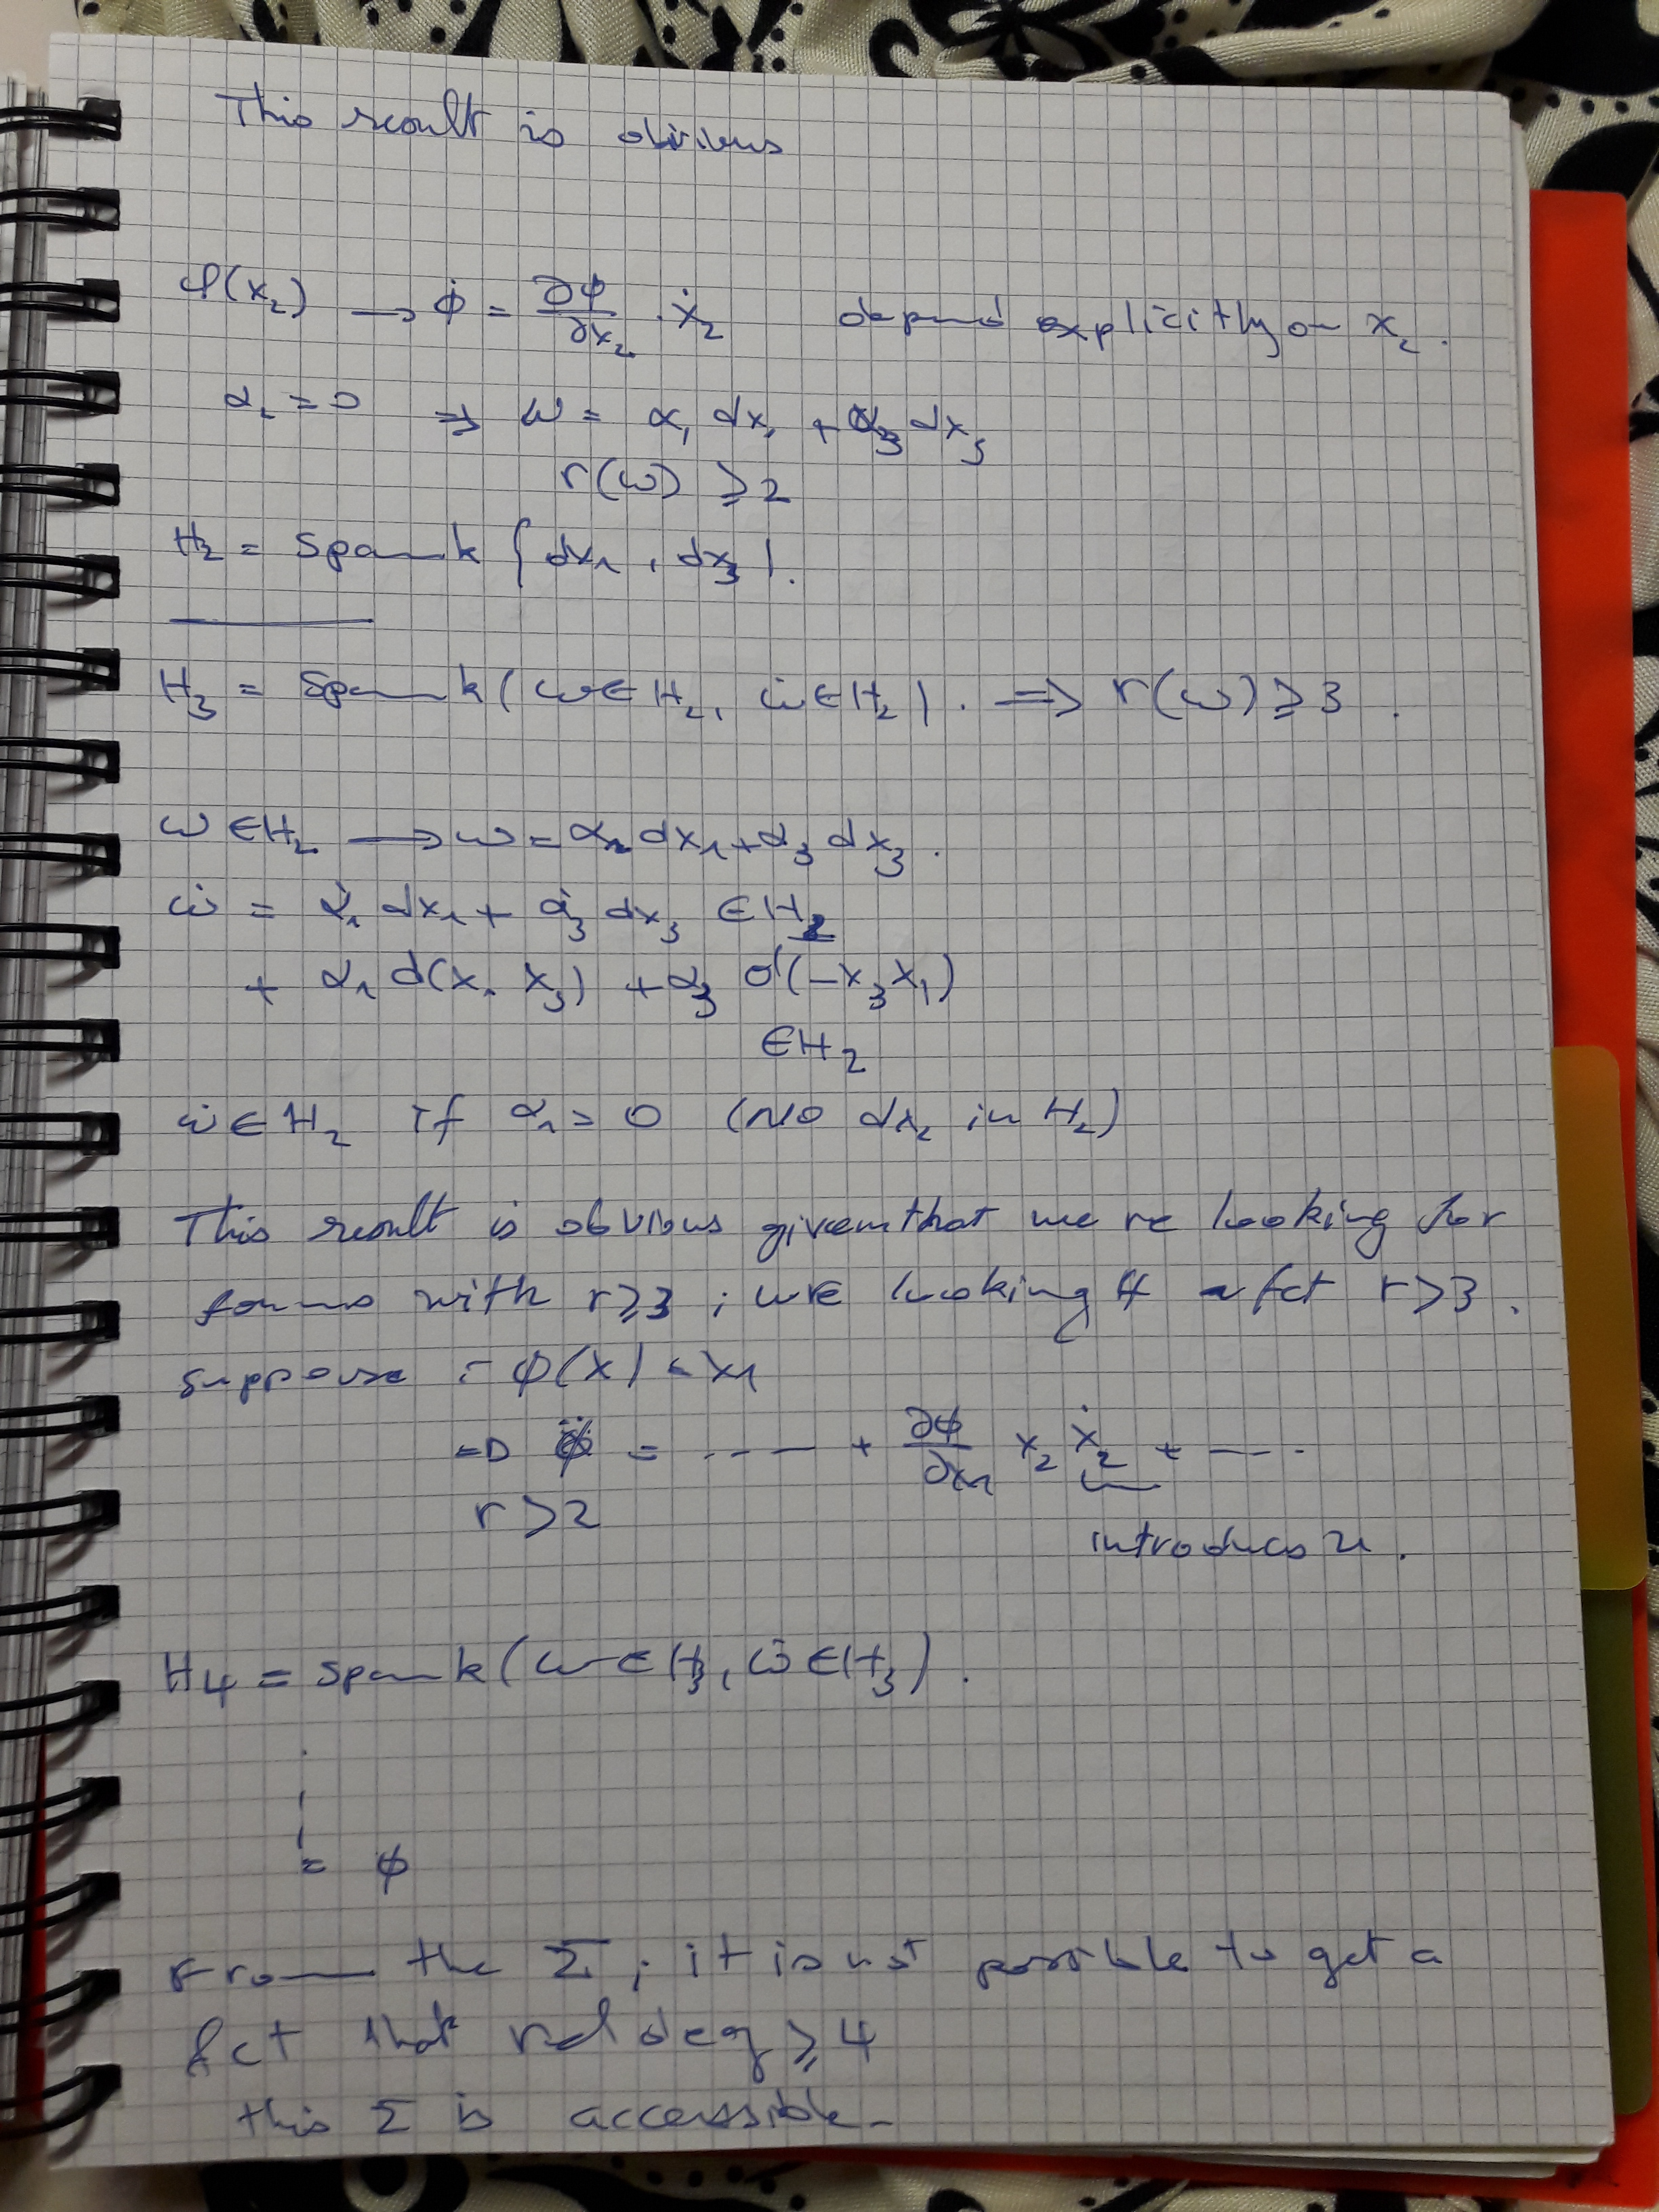 This result is obvious
φ(x₂) → φ̇ = ∂φ/∂x₂ · ẋ₂ depend explicitly on x₂.
α₂ = 0 ⇒ ω = α₁ dx₁ + α₃ dx₃
r(ω) ⩾ 2
H₂ = span k { dx₁, dx₃ }.
H₃ = span k (ω ∈ H₂, ω̇ ∈ H₂). ⇒ r(ω) ⩾ 3.
ω ∈ H₂ → ω = α₁ dx₁ + α₃ dx₃.
ω̇ = α̇₁ dx₁ + α̇₃ dx₃ ∈ H₂
+ α₁ d( x₃) + α₃ d(-x₃x₁)
∈ H₂
ω̇ ∈ H₂ if α₁ = 0 (No dx₂ in H₂)
This result is obvious given that we re looking for
forms with r ⩾ 3 ; we looking a fct r > 3.
suppose : φ(x) = x₁
⇒ φ̈ = ---- + ∂φ/∂x₁ x₂ ẋ₂ + ----
r > 2
introduces u.
H₄ = span k (ω ∈ H₃, ω̇ ∈ H₃).
= ϕ
From the Σ, it is not possible to get a
fct that rel deg ⩾ 4
this Σ is accessible.